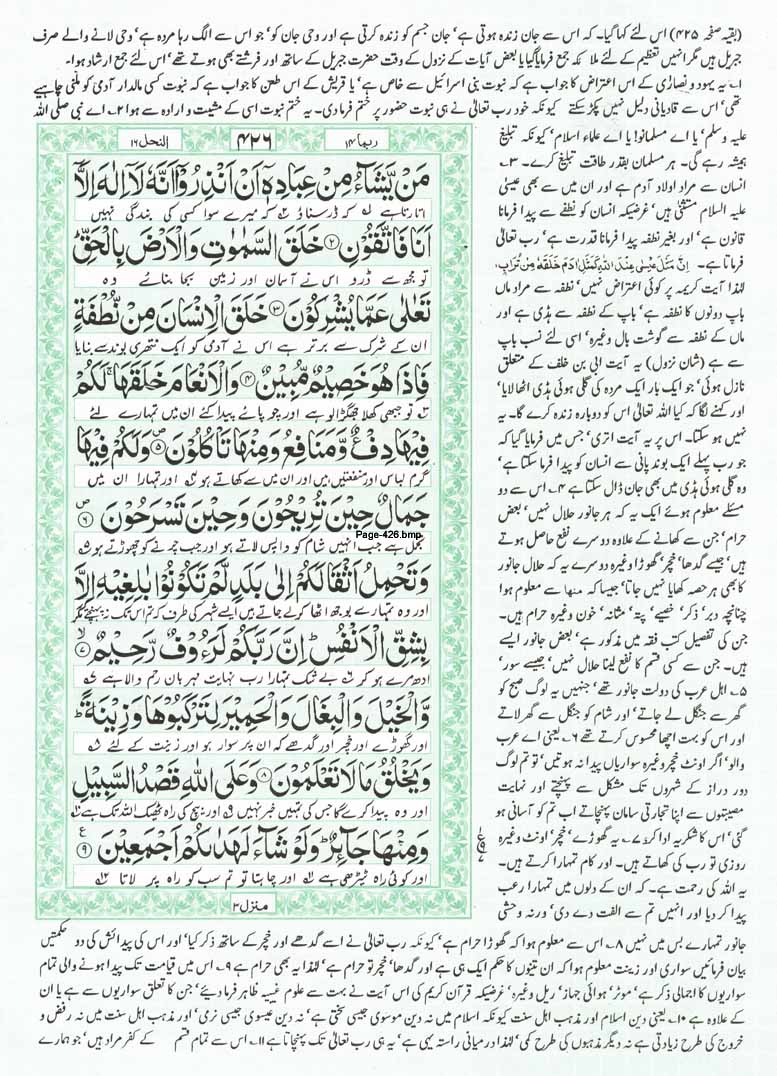 (بقیہ صفحہ ۴۲۵) اس لئے کہا گیا۔ کہ اس سے جان زندہ ہوتی ہے' جان جسم کو زندہ کرتی ہے اور وحی جان کو' جو اس سے الگ رہا مردہ ہے' وحی لانے والے صرف
جبریل ہیں مگر انہیں تعظیم کے لئے ملائکہ جمع فرمایا گیا یا بعض آیات کے نزول کے وقت حضرت جبریل کے ساتھ اور فرشتے بھی ہوتے تھے' اس لئے جمع ارشاد ہوا۔
۱ے یہ یہود و نصاریٰ کے اس اعتراض کا جواب ہے کہ نبوت بنی اسرائیل سے خاص ہے' یا قریش کے اس طعن کا جواب ہے کہ نبوت کسی مالدار آدمی کو ملنی چاہیے
تھی' اس سے قادیانی دلیل نہیں پکڑ سکتے کیونکہ خود رب تعالیٰ نے ہی نبوت حضور پر ختم فرما دی۔ یہ ختم نبوت اسی کے مشیت و ارادہ سے ہوا ۲ے اے نبی صلی اللہ
ربما ۱۴
۴۲۶
النحل ۱۶
مَنْ يَّشَآءُ مِنْ عِبَادِهٖٓ اَنْ اَنْذِرُوْٓا اَنَّهٗ لَآ اِلٰهَ اِلَّآ
اتارتا ہے ۱ے کہ ڈر سناؤ ۲ے کہ میرے سوا کسی کی بندگی نہیں
اَنَا فَاتَّقُوْنِ ۲ خَلَقَ السَّمٰوٰتِ وَالْاَرْضَ بِالْحَقِّ ؕ
تو مجھ سے ڈرو اس نے آسمان اور زمین بجا بنائے وہ
تَعٰلٰى عَمَّا يُشْرِكُوْنَ ۳ خَلَقَ الْاِنْسَانَ مِنْ نُّطْفَةٍ
ان کے شرک سے برتر ہے اس نے آدمی کو ایک نتھری بوند سے بنایا
فَاِذَا هُوَ خَصِيْمٌ مُّبِيْنٌ ۴ وَالْاَنْعَامَ خَلَقَهَا ۚ لَكُمْ
۳ے تو جبھی کھلا جھگڑالو ہے اور چوپائے پیدا کئے ان میں تمہارے لئے
فِيْهَا دِفْءٌ وَّمَنَافِعُ وَمِنْهَا تَاْكُلُوْنَ ۵ وَلَكُمْ فِيْهَا
گرم لباس اور منفعتیں ہیں اور ان میں سے کھاتے ہو ۴ے اور تمہارا ان میں
جَمَالٌ حِيْنَ تُرِيْحُوْنَ وَحِيْنَ تَسْرَحُوْنَ ۶
تجمل ہے جب انہیں شام کو واپس لاتے ہو اور جب چرنے کو چھوڑتے ہو ۵ے
Page-426.bmp
وَتَحْمِلُ اَثْقَالَكُمْ اِلٰى بَلَدٍ لَّمْ تَكُوْنُوْا بٰلِغِيْهِ اِلَّا
اور وہ تمہارے بوجھ اٹھا کر لے جاتے ہیں ایسے شہر کی طرف کہ تم اس تک نہ پہنچتے مگر
بِشِقِّ الْاَنْفُسِ ؕ اِنَّ رَبَّكُمْ لَرَءُوْفٌ رَّحِيْمٌ ۷
ادھ مرے ہو کر ۶ے بے شک تمہارا رب نہایت مہربان رحم والا ہے ۷ے
وَّالْخَيْلَ وَالْبِغَالَ وَالْحَمِيْرَ لِتَرْكَبُوْهَا وَزِيْنَةً ؕ
اور گھوڑے اور خچر اور گدھے کہ ان پر سوار ہو اور زینت کے لئے ۸ے
وَيَخْلُقُ مَا لَا تَعْلَمُوْنَ ۸ وَعَلَى اللّٰهِ قَصْدُ السَّبِيْلِ
اور وہ پیدا کرے گا جس کی تمہیں خبر نہیں ۹ے اور بیچ کی راہ ٹھیک اللہ تک ہے ۱۰ے
وَمِنْهَا جَآئِرٌ ؕ وَلَوْ شَآءَ لَهَدٰىكُمْ اَجْمَعِيْنَ ۹
اور کوئی راہ ٹیڑھی ہے ۱۱ے اور چاہتا تو تم سب کو راہ پر لاتا ۱۲ے
منزل ۳
علیہ وسلم' یا اے مسلمانو! یا اے علماء اسلام' کیونکہ تبلیغ
ہمیشہ رہے گی۔ ہر مسلمان بقدر طاقت تبلیغ کرے۔ ۳ے
انسان سے مراد اولاد آدم ہے اور ان میں سے بھی عیسیٰ
علیہ السلام مستثنیٰ ہیں' غرضیکہ انسان کو نطفے سے پیدا فرمانا
قانون ہے' اور بغیر نطفہ پیدا فرمانا قدرت ہے' رب تعالیٰ
فرماتا ہے۔ اِنَّ مَثَلَ عِیْسٰی عِنْدَ اللّٰہِ کَمَثَلِ اٰدَمَ خَلَقَہٗ مِنْ تُرَابٍ،
لہٰذا آیت کریمہ پر کوئی اعتراض نہیں' نطفہ سے مراد ماں
باپ دونوں کا نطفہ ہے' باپ کے نطفہ سے ہڈی ہے اور
ماں کے نطفہ سے گوشت بال وغیرہ' اسی لئے نسب باپ
سے ہے (شان نزول) یہ آیت ابی بن خلف کے متعلق
نازل ہوئی' جو ایک بار ایک مردہ کی گلی ہوئی ہڈی اٹھا لایا'
اور کہنے لگا کہ کیا اللہ تعالیٰ اس کو دوبارہ زندہ کرے گا۔ یہ
نہیں ہو سکتا۔ اس پر یہ آیت اتری' جس میں فرمایا گیا کہ
جو رب پہلے ایک بوند پانی سے انسان کو پیدا فرما سکتا ہے'
وہ گلی ہوئی ہڈی میں بھی جان ڈال سکتا ہے ۴ے اس سے دو
مسئلے معلوم ہوئے ایک یہ کہ ہر جانور حلال نہیں' بعض
حرام' جن سے کھانے کے علاوہ دوسرے نفع حاصل ہوتے
ہیں' جیسے گدھا' خچر' گھوڑا وغیرہ دوسرے یہ کہ حلال جانور
کا بھی ہر حصہ کھایا نہیں جاتا' جیسا کہ منھا سے معلوم ہوا
چنانچہ دبر' ذکر' خصیے' پتہ' مثانہ' خون وغیرہ حرام ہیں۔
جن کی تفصیل کتب فقہ میں مذکور ہے' بعض جانور ایسے
ہیں۔ جن سے کسی قسم کا نفع لینا حلال نہیں' جیسے سور'
۵ے اہل عرب کی دولت جانور تھے' جنہیں یہ لوگ صبح کو
گھر سے جنگل لے جاتے' اور شام کو جنگل سے گھر لاتے
اور اس کو بہت اچھا محسوس کرتے تھے ۶ے یعنی اے عرب
والو' اگر اونٹ خچر وغیرہ سواریاں پیدا نہ ہوتیں' تو تم لوگ
دور دراز کے شہروں تک مشکل سے پہنچتے اور نہایت
مصیبتوں سے اپنا تجارتی سامان پہنچاتے اب تم کو آسانی ہو
گئی' اس کا شکریہ ادا کرو ۷ے یہ گھوڑے' خچر' اونٹ وغیرہ
روزی تو رب کی کھاتے ہیں۔ اور کام تمہارا کرتے ہیں۔
یہ اللہ کی رحمت ہے۔ کہ ان کے دلوں میں تمہارا رعب
پیدا کر دیا اور انہیں تم سے الفت دے دی' ورنہ وحشی
جانور تمہارے بس میں نہیں ۸ے اس سے معلوم ہوا کہ گھوڑا حرام ہے' کیونکہ رب تعالیٰ نے اسے گدھے اور خچر کے ساتھ ذکر کیا' اور اس کی پیدائش کی دو حکمتیں
بیان فرمائیں سواری اور زینت معلوم ہوا کہ ان تینوں کا حکم ایک ہی ہے اور گدھا' خچر تو حرام ہے' لہٰذا یہ بھی حرام ہے ۹ے اس میں قیامت تک پیدا ہونے والی تمام
سواریوں کا اجمالی ذکر ہے' موٹر' ہوائی جہاز' ریل وغیرہ' غرضیکہ قرآن کریم کی اس آیت نے بہت سے علوم غیبیہ ظاہر فرما دیئے' جن کا تعلق سواریوں سے ہے یا ان
کے علاوہ ہے ۱۰ے یعنی دین اسلام اور مذہب اہل سنت کیونکہ اسلام میں نہ دین موسوی جیسی سختی ہے' نہ دین عیسوی جیسی نرمی' اور مذہب اہل سنت میں نہ رفض و
خروج کی طرح زیادتی ہے نہ دیگر مذہبوں کی طرح کمی' لہٰذا درمیانی راستہ یہی ہے' یہ ہی رب تعالیٰ تک پہنچاتا ہے ۱۱ے اس سے تمام قسم کے کفر مراد ہیں' جو ہمارے